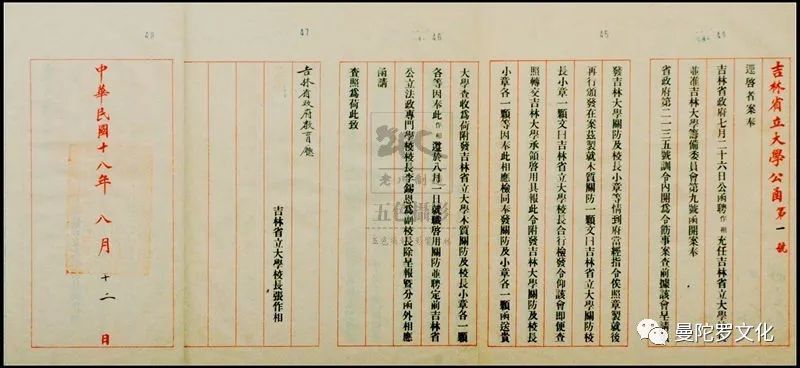 吉林省立大學公函第一號
逕啓者案奉
吉林省政府七月二十六日公函聘作相充任吉林省立大學
並准吉林大學籌備委員會第九號函開案奉
省政府第二一三五號訓令內開為令飭事案查前據該會呈請
發吉林大學關防及校長小章等情到府當經指令俟照章製就後
再行頒發在案茲製就木質關防一顆文曰吉林省立大學關防校
長小章一顆文曰吉林省立大學校長合行檢發令仰該會即便查
照轉交吉林大學承領啓用具報此令附發吉林大學關防及校長
小章各一顆等因奉此相應檢同奉發關防及小章各一顆函送貴
大學查收為荷附發吉林省立大學木質關防及校長小章各一顆
各等因奉此作相遵於八月一日就職啓用關防並聘定前吉林省
公立法政專門學校校長李錫恩為副校長除呈報暨分函外相應
函請
查照為荷此致
吉林省政府教育廳
吉林省立大學校長張作相
中華民國十八年八月十二日
44
45
46
47
48
老照
五色攝影
曼陀罗文化